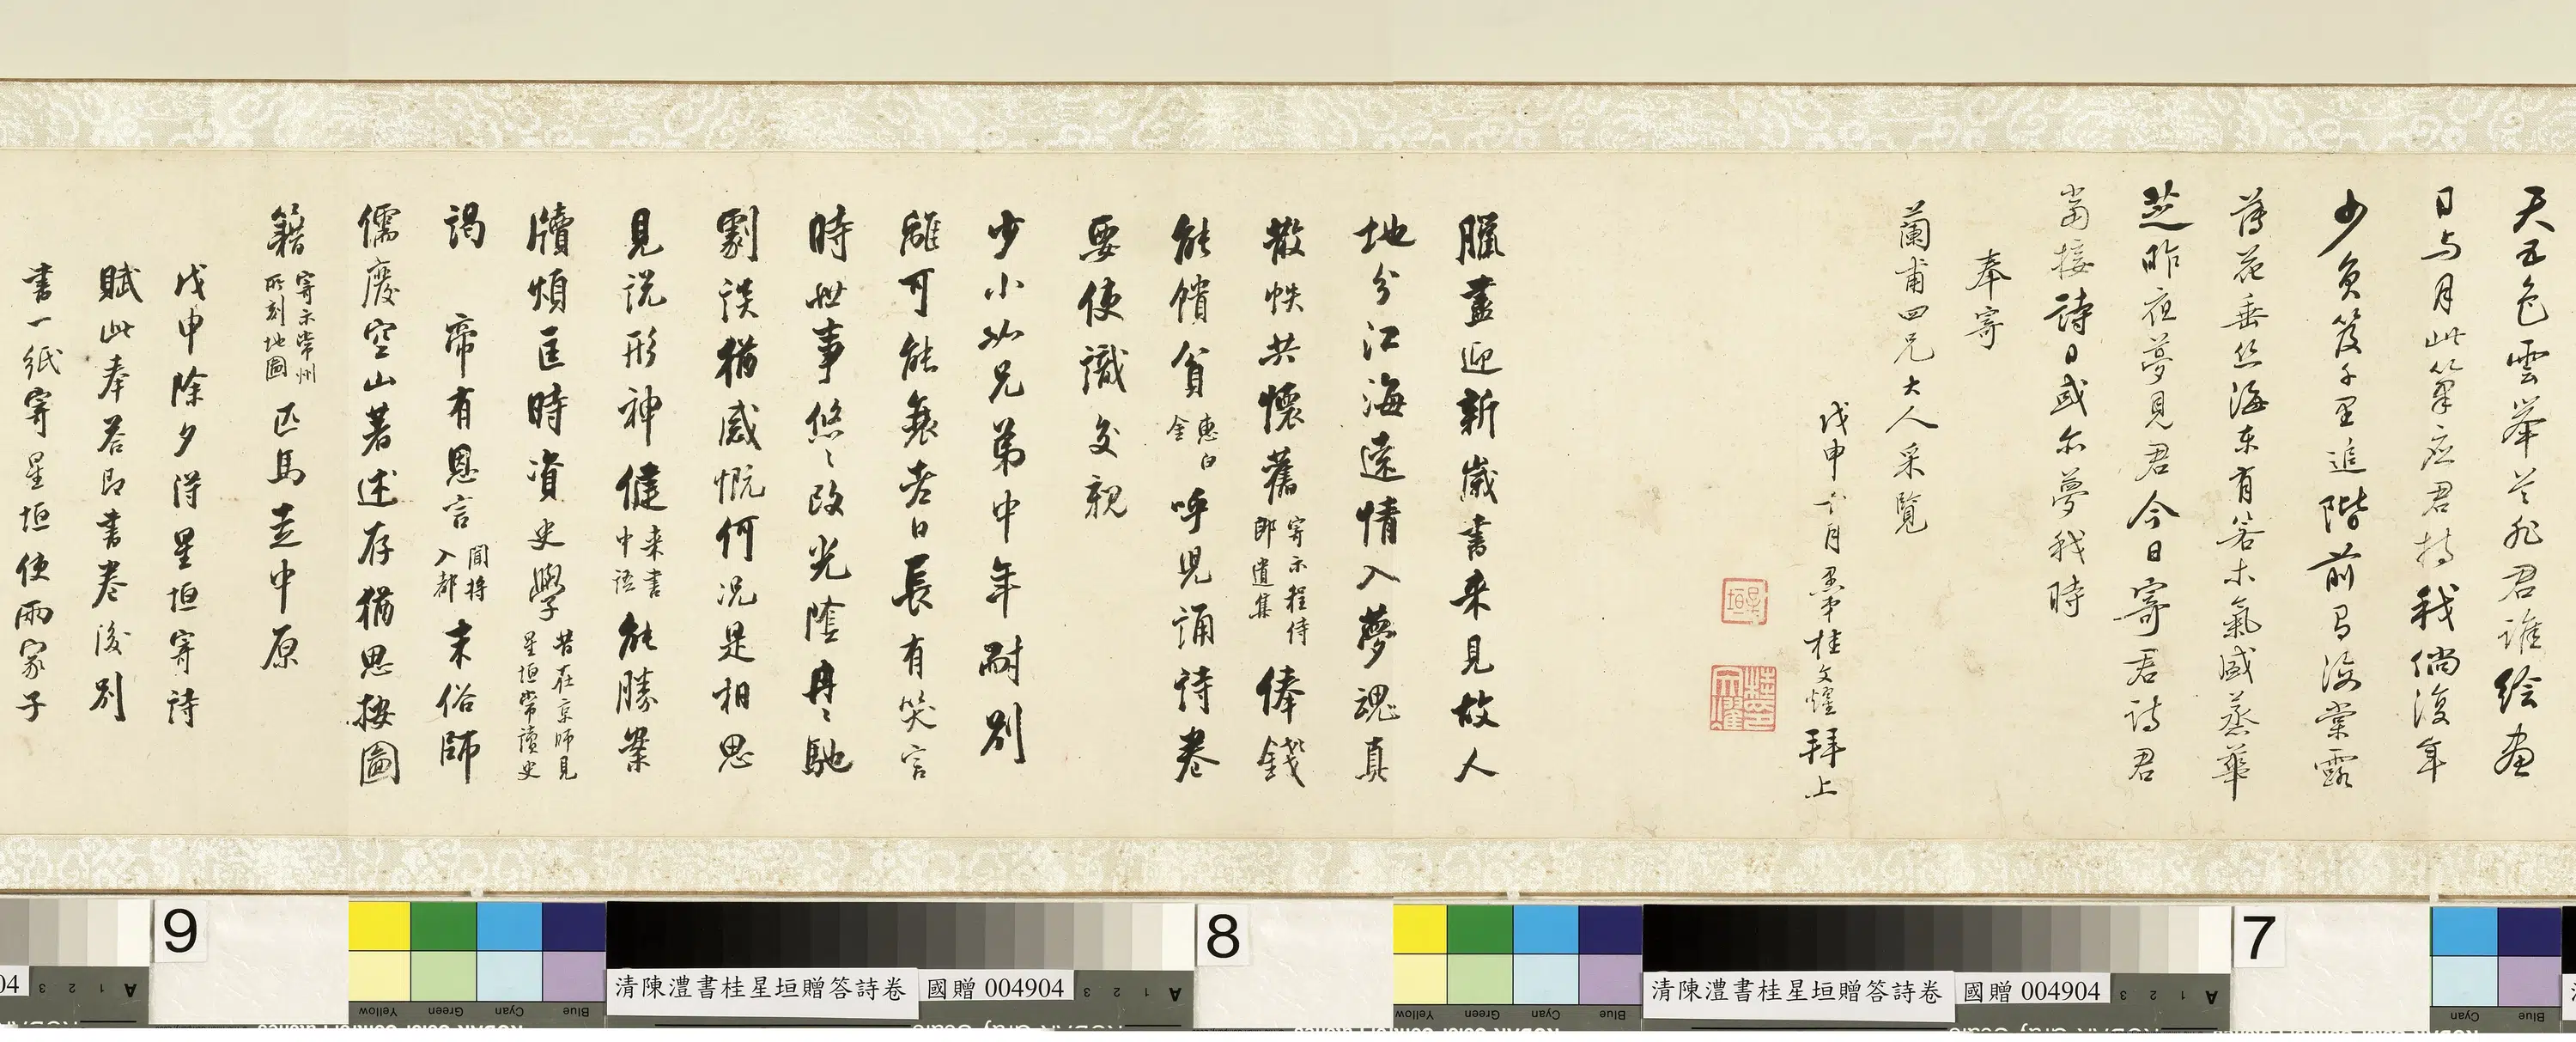 天五色雲举笔兆君誰绘画
日与月此筆应君持我倘復年
少負笈千里追階前見海棠露
落花垂丝海东有若木氣感蒸華
芝昨夜夢見君今日寄君詩君
當接詩日或尔夢我時
奉寄
蘭甫四兄大人采覧
戊申十月愚弟桂文燿拜上
臘盡迎新歲書来見故人
地分江海遠情入夢魂真
散帙共懷舊寄示程侍郎遺集俸錢
能饋貧惠白金呼児誦詩卷
要使識交親
少小如兄弟中年耐別
離可能無老日長有笑言
時世事悠〻改光陰冉〻馳
劇談猶感慨何况是相思
見说形神健来書中語能勝案
牘煩匡時資史學昔在京師見星垣常讀史
謁 帝有恩言聞将入都末俗師
儒廢空山著述存猶思按圖
籍寄示常州所刻地圖匹馬走中原
戊申除夕得星垣寄詩
賦此奉答即書卷後别
書一紙寄星垣使兩家子
9
8
7
清陳澧書桂星垣贈答詩卷 國贈 004904
清陳澧書桂星垣贈答詩卷 國贈 004904
04
Yellow Green Cyan Blue
Yellow Green Cyan Blue
Cyan Blue
A 1 2 3
A 1 2 3
A 1 2 3